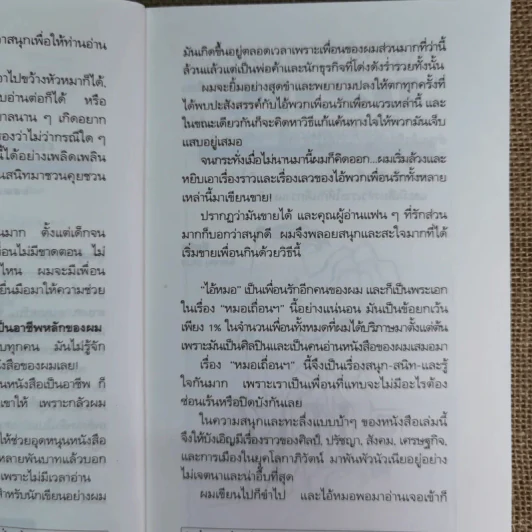 าสนุกเพื่อให้ท่านอ่าน
าไปขว้างหัวหมาก็ได้.
บอ่านต่อก็ได้ หรือ
าลนาน ๆ เกิดอยาก
องว่าไม่ว่ากรณีใด ๆ
นี้ได้อย่างเพลิดเพลิน
นสนิทมาชวนคุยชวน
นมาก ตั้งแต่เด็กจน
อนไม่มีขาดตอน ไม่
ไหน ผมจะมีเพื่อน
ยื่นมือมาให้ความช่วย
ป็นอาชีพหลักของผม
บทุกคน มันไม่รู้จัก
งสือของผมเลย!
นหนังสือเป็นอาชีพ ก็
เขาให้ เพราะกลัวผม
ให้ช่วยอุดหนุนหนังสือ
หลายพันบาทแล้วบอก
เพราะไม่มีเวลาอ่าน
สำหรับนักเขียนอย่างผม
มันเกิดขึ้นอยู่ตลอดเวลาเพราะเพื่อนของผมส่วนมากที่ว่านี้
ล้วนแล้วแต่เป็นพ่อค้าและนักธุรกิจที่โด่งดังร่ำรวยทั้งนั้น
ผมจะยิ้มอย่างสุดขำและพยายามปลงให้ตกทุกครั้งที่
ได้พบปะสังสรรค์กับไอ้พวกเพื่อนรักเพื่อนเวรเหล่านี้ และ
ในขณะเดียวกันก็จะคิดหาวิธีแก้แค้นทางใจให้พวกมันเจ็บ
แสบอยู่เสมอ
จนกระทั่งเมื่อไม่นานมานี้ผมก็คิดออก...ผมเริ่มล้วงและ
หยิบเอาเรื่องราวและเรื่องเลวของไอ้พวกเพื่อนรักทั้งหลาย
เหล่านี้มาเขียนขาย!
ปรากฏว่ามันขายได้ และคุณผู้อ่านแฟน ๆ ที่รักส่วน
มากก็บอกว่าสนุกดี ผมจึงพลอยสนุกและสะใจมากที่ได้
เริ่มขายเพื่อนกินด้วยวิธีนี้
"ไอ้หมอ" เป็นเพื่อนรักอีกคนของผม และก็เป็นพระเอก
ในเรื่อง "หมอเถื่อนฯ" นี้อย่างแน่นอน มันเป็นข้อยกเว้น
เพียง 1% ในจำนวนเพื่อนทั้งหมดที่ผมได้บริภาษมาตั้งแต่ต้น
เพราะมันเป็นศิลปินและเป็นคนอ่านหนังสือของผมเสมอมา
เรื่อง "หมอเถื่อนฯ" นี้จึงเป็นเรื่องสนุก-สนิท-และรู้
ใจกันมาก เพราะเราเป็นเพื่อนที่แทบจะไม่มีอะไรต้อง
ซ่อนเร้นหรือปิดบังกันเลย
ในความสนุกและทะลึ่งแบบบ้าๆ ของหนังสือเล่มนี้
จึงให้บังเอิญมีเรื่องราวของศิลป์, ปรัชญา, สังคม, เศรษฐกิจ,
และการเมืองในยุคโลกาภิวัตน์ มาพันพัวนัวเนียอยู่อย่าง
ไม่เจตนาและน่าอึ้บที่สุด
ผมเขียนไปก็ขำไป และไอ้หมอพอมาอ่านเจอเข้าก็